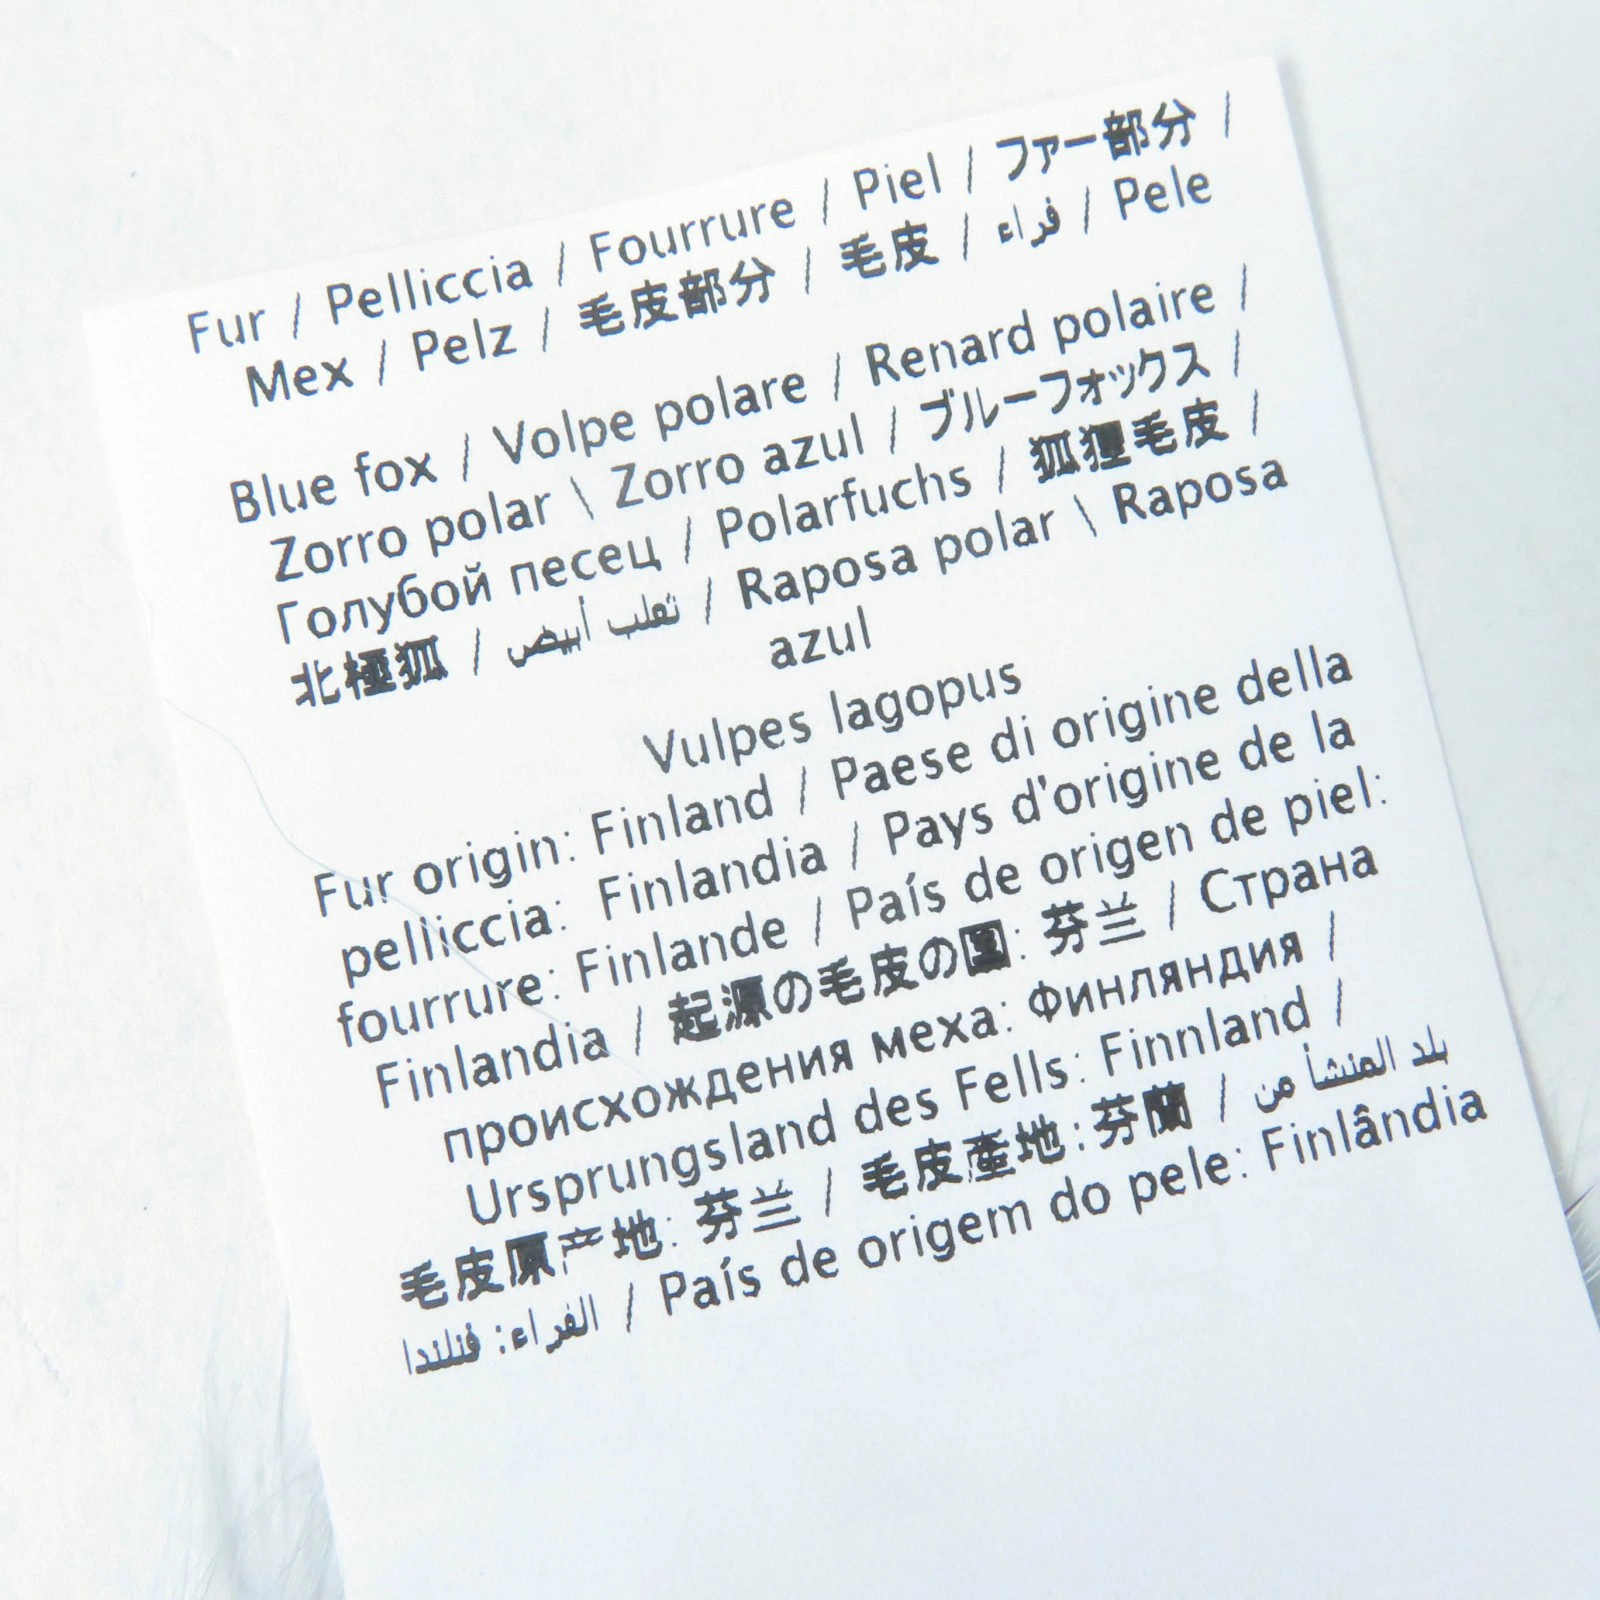 Fur / Pelliccia / Fourrure / Piel / ファー部分 /
Mex / Pelz / 毛皮部分 / 毛皮 / فراء / Pele
Blue fox / Volpe polare / Renard polaire /
Zorro polar \ Zorro azul / ブルーフォックス /
Голубой песец / Polarfuchs / 狐狸毛皮 /
北極狐 / ثعلب أبيض / Raposa polar \ Raposa
azul
Vulpes lagopus
Fur origin: Finland / Paese di origine della
pelliccia: Finlandia / Pays d'origine de la
fourrure: Finlande / País de origen de piel:
Finlandia / 起源の毛皮の国: 芬兰 / Страна
происхождения меха: Финляндия /
Ursprungsland des Fells: Finnland /
毛皮原产地: 芬兰 / 毛皮產地:芬蘭 / بلد المنشأ من
الفراء: فنلندا / País de origem do pele: Finlândia